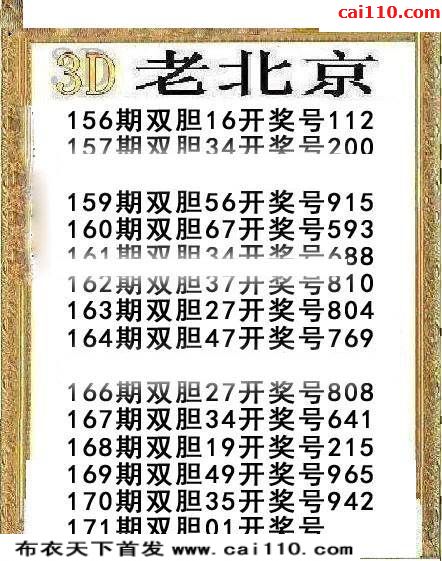 cai110.com
3D 老北京
156期双胆16开奖号112
157期双胆34开奖号200
159期双胆56开奖号915
160期双胆67开奖号593
161期双胆34开奖号688
162期双胆37开奖号810
163期双胆27开奖号804
164期双胆47开奖号769
166期双胆27开奖号808
167期双胆34开奖号641
168期双胆19开奖号215
169期双胆49开奖号965
170期双胆35开奖号942
171期双胆01开奖号
布衣天下首发 www.cai110.com